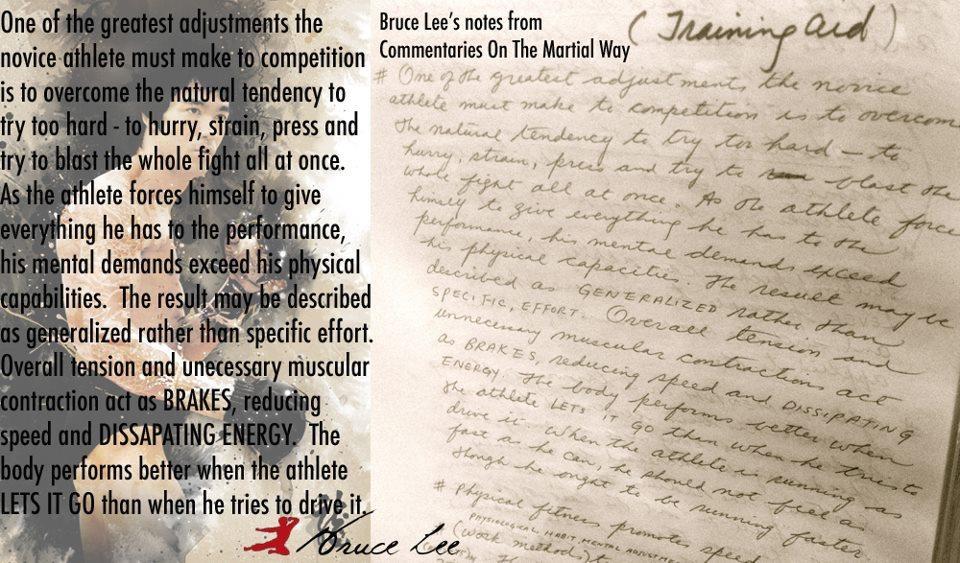 One of the greatest adjustments the
novice athlete must make to competition
is to overcome the natural tendency to
try too hard - to hurry, strain, press and
try to blast the whole fight all at once.
As the athlete forces himself to give
everything he has to the performance,
his mental demands exceed his physical
capabilities. The result may be described
as generalized rather than specific effort.
Overall tension and unecessary muscular
contraction act as BRAKES, reducing
speed and DISSAPATING ENERGY. The
body performs better when the athlete
LETS IT GO than when he tries to drive it.
Bruce Lee
Bruce Lee's notes from
Commentaries On The Martial Way
(Training aid)
# One of the greatest adjustments the novice
athlete must make to competition is to overcom
the natural tendency to try too hard — to
hurry, strain, press and try to blast the
whole fight all at once. As the athlete force
himself to give everything he has to the
performance, his mental demands exceed
his physical capacities. The result may be
described as GENERALIZED rather than
SPECIFIC, EFFORT. Overall tension and
unnecessary muscular contractions act
as BRAKES, reducing speed and DISSIPATING
ENERGY. The body performs better when
the athlete LETS IT GO than when he tries to
drive it. When the athlete is running as
fast as he can, he should not feel as
though he ought to be running faster.
# Physical fitness promote speed
PHYSIOLOGICAL, HABIT, MENTAL ADJUSTME
(work methods) t